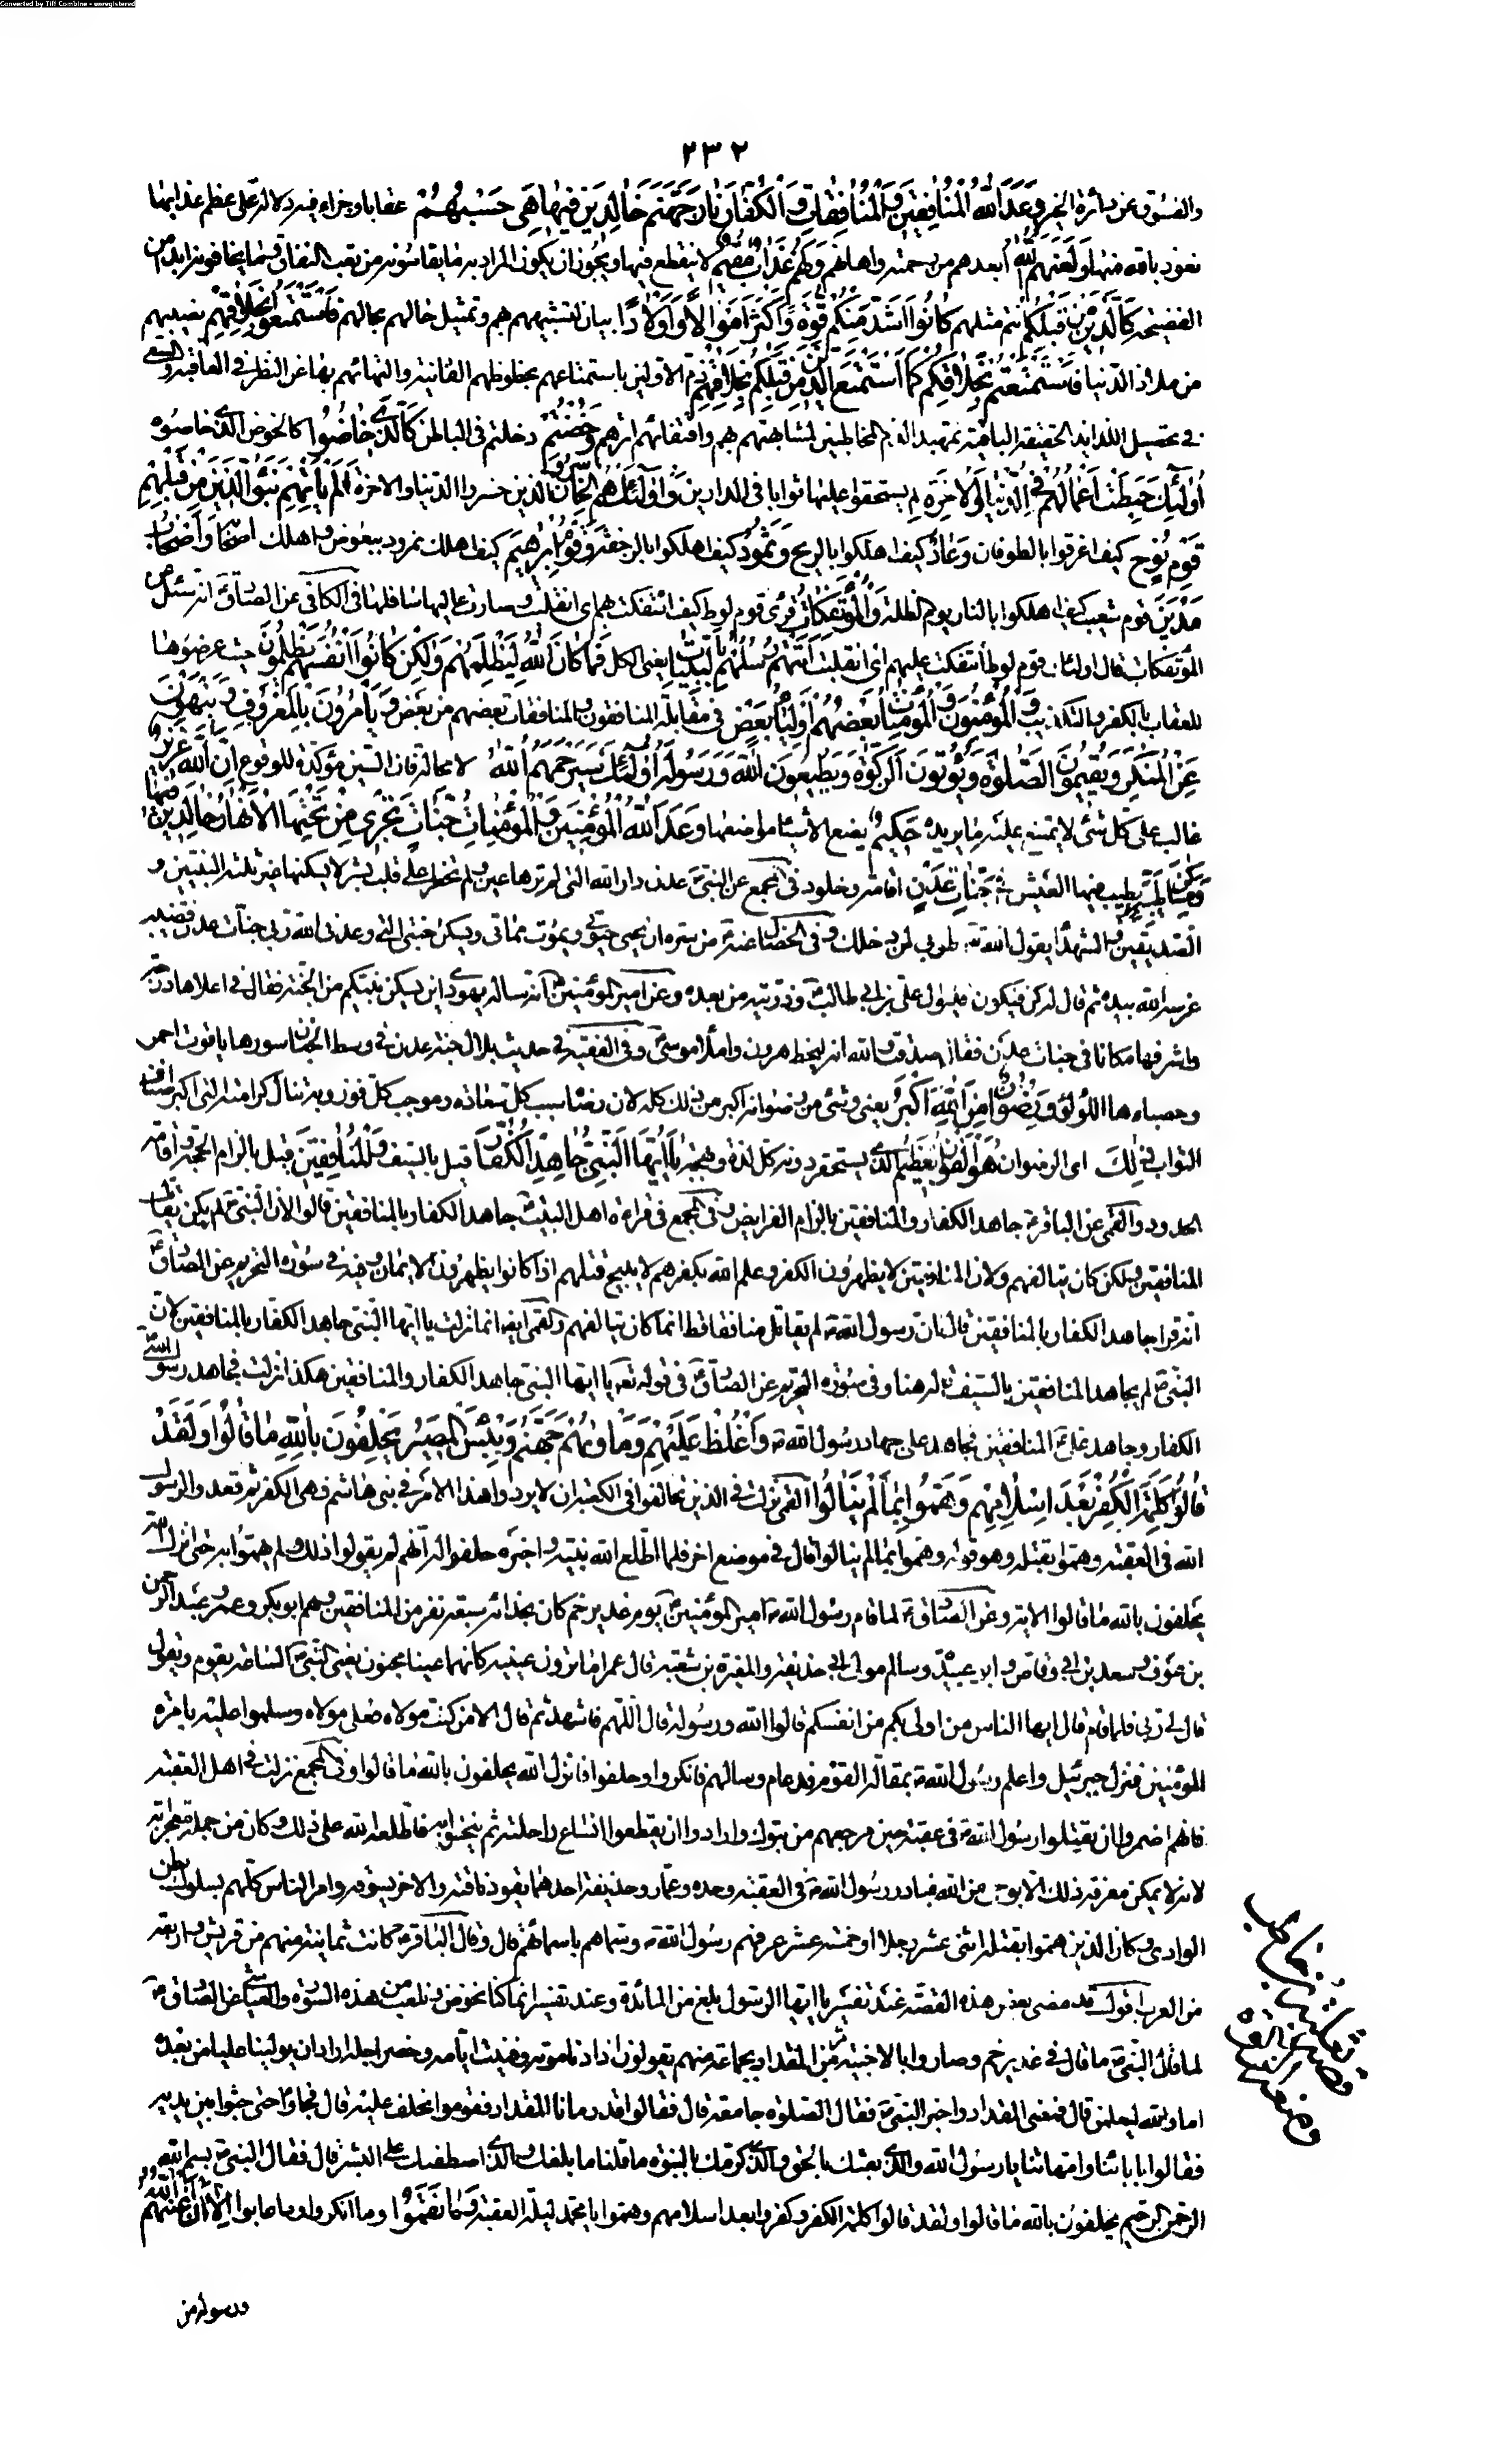 Converted by Tiff Combine - unregistered
٢٣٢
والفسوق عن دائرة الخير وَعَدَ اللهُ الْمُنَافِقِينَ وَالْمُنَافِقَاتِ وَالْكُفَّارَ نَارَ جَهَنَّمَ خَالِدِينَ فِيهَا هِيَ حَسْبُهُمْ عقابا وجزاء وفيه دلالة على عظم عذابها
نعوذ بالله منها وَلَعَنَهُمُ اللهُ ابعدهم من رحمته واهانهم وَلَهُمْ عَذَابٌ مُقِيمٌ لا ينقطع فيها ويجوز ان يكون المراد به ما يقاسونه من تعب النفاق وما يخافونه ابدا من
الفضيحة كَالَّذِينَ مِنْ قَبْلِكُمْ انتم مثلهم كَانُوا أَشَدَّ مِنْكُمْ قُوَّةً وَأَكْثَرَ أَمْوَالاً وَأَوْلَادًا بيان لتشبيههم بهم وتمثيل حالهم بحالهم فَاسْتَمْتَعُوا بِخَلَاقِهِمْ نصيبهم
من ملاذ الدنيا فَاسْتَمْتَعْتُمْ بِخَلَاقِكُمْ كَمَا اسْتَمْتَعَ الَّذِينَ مِنْ قَبْلِكُمْ بِخَلَاقِهِمْ ذم الاولين باستمتاعهم بحظوظهم الفانية والتهائهم بها عن النظر في العاقبة والسعي
في تحصيل اللذايذ الحقيقية الباقية تمهيدا لذم المخاطبين لمشابهتهم بهم واقتفائهم اثرهم وَخُضْتُمْ دخلتم في الباطن كَالَّذِي خَاضُوا كالخوض الذي خاضوه
أُولَئِكَ حَبِطَتْ أَعْمَالُهُمْ فِي الدُّنْيَا وَالْآخِرَةِ لم يستحقوا عليها ثوابا في الدارين وَأُولَئِكَ هُمُ الْخَاسِرُونَ الذين خسروا الدنيا والاخرة أَلَمْ يَأْتِهِمْ نَبَأُ الَّذِينَ مِنْ قَبْلِهِمْ
قَوْمِ نُوحٍ كيف اغرقوا بالطوفان وَعَادٍ كيف اهلكوا بالريح وَثَمُودَ كيف اهلكوا بالرجفة وَقَوْمِ إِبْرَهِيمَ كيف اهلك نمرود ببعوض واهلك اصحابه وَأَصْحَابِ
مَدْيَنَ قوم شعيب كيف اهلكوا بالنار يوم الظلة وَالْمُؤْتَفِكَاتِ قرى قوم لوط كيف ائتفكت بهم اي انقلبت وصارت عاليها سافلها في الكافي عن الصادق انه سئل عن
المؤتفكات قال اولئك قوم لوط ائتفكت عليهم اي انقلبت أَتَتْهُمْ رُسُلُهُمْ بِالْبَيِّنَاتِ يعني الكل فَمَا كَانَ اللهُ لِيَظْلِمَهُمْ وَلَكِنْ كَانُوا أَنْفُسَهُمْ يَظْلِمُونَ حيث عرضوها
للعقاب بالكفر والتكذيب وَالْمُؤْمِنُونَ وَالْمُؤْمِنَاتُ بَعْضُهُمْ أَوْلِيَاءُ بَعْضٍ في مقابلة المنافقون والمنافقات بعضهم من بعض يَأْمُرُونَ بِالْمَعْرُوفِ وَيَنْهَوْنَ
عَنِ الْمُنْكَرِ وَيُقِيمُونَ الصَّلَوةَ وَيُؤْتُونَ الزَّكَوةَ وَيُطِيعُونَ اللهَ وَرَسُولَهُ أُولَئِكَ سَيَرْحَمُهُمُ اللهُ لا محالة فان السين مؤكدة للوقوع إِنَّ اللهَ عَزِيزٌ
غالب على كل شئ لا يمتنع عليه ما يريده حَكِيمٌ يضع الاشياء مواضعها وَعَدَ اللهُ الْمُؤْمِنِينَ وَالْمُؤْمِنَاتِ جَنَّاتٍ تَجْرِي مِنْ تَحْتِهَا الْأَنْهَارُ خَالِدِينَ فِيهَا
وَمَسَاكِنَ طَيِّبَةً يطيب فيها العيش فِي جَنَّاتِ عَدْنٍ اقامة وخلود في المجمع عن النبي عدن دار الله التي لم ترها عين ولم تخطر على قلب بشر لا يسكنها غير ثلثة النبيين و
الصديقين والشهداء يقول الله طوبى لمن دخلك وفي الخصال عنه من سره ان يحيى حيوتي ويموت مماتي ويسكن جنتي التي وعدني الله ربي جنات عدن قضيب
غرسه الله بيده ثم قال له كن فيكون فليوال علي بن ابي طالب وذريته من بعده وعن امير المؤمنين انه ساله يهودي اين يسكن نبيكم من الجنة فقال في اعلاها درجة
واشرفها مكانا في جنات عدن فقال صدقت والله انه لبخط هرون واملاء موسى وفي الفقيه في حديث بلال جنة عدن في وسط الجنان سورها ياقوت احمر
وحصباءها اللؤلؤ وَرِضْوَانٌ مِنَ اللهِ أَكْبَرُ يعني وشئ من رضوانه اكبر من ذلك كله لان رضاه سبب كل سعادة وموجب كل فوز وبه تنال كرامته التي اكبر اصناف
الثواب ذَلِكَ اي الرضوان هُوَ الْفَوْزُ الْعَظِيمُ الذي يستحقر دونه كل لذة وبهجة يَا أَيُّهَا النَّبِيُّ جَاهِدِ الْكُفَّارَ قيل بالسيف وَالْمُنَافِقِينَ قيل بالزام الحجة واقامة
الحدود والقمي عن الباقر جاهد الكفار والمنافقين بالزام الفرايض وفي المجمع في قراءة اهل البيت جاهد الكفار بالمنافقين قالوا لان النبي لم يكن يقاتل
المنافقين ولكن كان يتالفهم ولان المنافقين لا يظهرون الكفر وعلم الله بكفرهم لا يبيح قتلهم اذا كانوا يظهرون الايمان وفيه في سورة التحريم عن الصادق
انه قرأ جاهد الكفار بالمنافقين قال ان رسول الله لم يقاتل منافقا قط انما كان يتالفهم والقمي ايضا انما نزلت يا ايها النبي جاهد الكفار بالمنافقين لان
النبي لم يجاهد المنافقين بالسيف قاله هنا وفي سورة التحريم عن الصادق في قوله تع يا ايها النبي جاهد الكفار والمنافقين هكذا نزلت فجاهد رسول الله
الكفار وجاهد علي المنافقين فجاهد علي جهاد رسول الله وَاغْلُظْ عَلَيْهِمْ وَمَأْوَيهُمْ جَهَنَّمُ وَبِئْسَ الْمَصِيرُ يَحْلِفُونَ بِاللهِ مَا قَالُوا وَلَقَدْ
قَالُوا كَلِمَةَ الْكُفْرِ وَكَفَرُوا بَعْدَ إِسْلَامِهِمْ وَهَمُّوا بِمَا لَمْ يَنَالُوا القمي نزلت في الذين تحالفوا في الكعبة ان لا يردوا هذا الامر في بني هاشم فهي الكفر ثم قعدوا لرسول
الله في العقبة وهموا بقتله وهو قوله وهموا بما لم ينالوا قال في موضع اخر فلما اطلع الله نبيه واخبره حلفوا له انهم لم يقولوا ذلك ولم يهموا به حتى انزل الله
يحلفون بالله ما قالوا الاية وعن الصادق لما اقام رسول الله امير المؤمنين يوم غدير خم كان بحذائه سبعة نفر من المنافقين وهم ابو بكر وعمر وعبد الرحمن
بن عوف وسعد بن ابي وقاص وابو عبيدة وسالم مولى ابي حذيفة والمغيرة بن شعبة قال عمر اما ترون عينيه كانهما عينا مجنون يعني النبي الساعة يقوم ويقول
قال لي ربي فلما قام قال ايها الناس من اولى بكم من انفسكم قالوا الله ورسوله قال اللهم فاشهد ثم قال الا من كنت مولاه فعلي مولاه وسلموا عليه بامرة
المؤمنين فنزل جبرئيل واعلم رسول الله بمقالة القوم فدعاهم وسالهم فانكروا وحلفوا فانزل الله يحلفون بالله ما قالوا وفي المجمع نزلت في اهل العقبة
فانهم اضمروا ان يقتلوا رسول الله في عقبة حين مرجعهم من تبوك وارادوا ان يقطعوا انساع راحلته ثم ينخسوا به فاطلعه الله على ذلك وكان من جملة معجزاته
لانه لا يمكن معرفة ذلك الا بوحي من الله فبادر رسول الله في العقبة وحده وعمار وحذيفة احدهما يقود ناقته والاخر يسوقه وامر الناس كلهم بسلوك بطن
الوادي وكان الذين هموا بقتله اثني عشر رجلا او خمسة عشر عرفهم رسول الله وسماهم باسمائهم قال وقال الباقر كانت ثمانية منهم من قريش واربعة
من العرب اقول قد مضى بعض هذه القصة عند تفسير يا ايها الرسول بلغ من المائدة وعند تفسير انما كنا نخوض ونلعب من هذه السورة والعياشي عن الصادق
لما قال النبي ما قال في غدير خم وصاروا بالاخبية مر المقداد بجماعة منهم يقولون اذا دنا موته وفنيت ايامه وحضر اجله اراد ان يولينا عليا من بعده
اما والله ليعلمن قال فمضى المقداد واخبر النبي فقال الصلوة جامعة قال فقالوا قد رمانا المقداد فقوموا نحلف عليه قال فجاؤا حتى جثوا بين يديه
فقالوا بابائنا وامهاتنا يا رسول الله والذي بعثك بالحق والذي كرمك بالنبوة ما قلنا ما بلغك والذي اصطفيك على البشر قال فقال النبي بسم الله
الرحمن الرحيم يحلفون بالله ما قالوا ولقد قالوا كلمة الكفر وكفروا بعد اسلامهم وهموا بك يا محمد ليلة العقبة وَمَا نَقَمُوا وما انكروا وما عابوا إِلَّا أَنْ أَغْنَيهُمُ اللهُ
ورسوله من